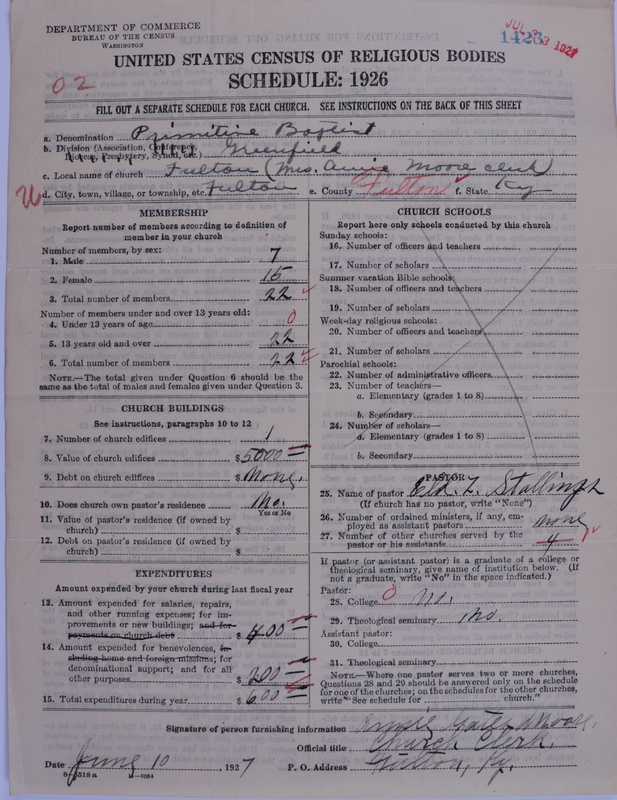 DEPARTMENT OF COMMERCE
BUREAU OF THE CENSUS
WASHINGTON
1423
1927
UNITED STATES CENSUS OF RELIGIOUS BODIES
SCHEDULE: 1926
02
FILL OUT A SEPARATE SCHEDULE FOR EACH CHURCH. SEE INSTRUCTIONS ON THE BACK OF THIS SHEET
a. Denomination Primitive Baptist
b. Division (Association, Conference, Diocese, Presbytery, Synod, etc.) Greenfield
c. Local name of church Fulton (Mrs. Annie Moore clerk)
d. City, town, village, or township, etc. Fulton e. County Fulton f. State Ky
MEMBERSHIP
Report number of members according to definition of
member in your church
Number of members, by sex:
1. Male 7
2. Female 15
3. Total number of members 22
Number of members under and over 13 years old:
4. Under 13 years of age 0
5. 13 years old and over 22
6. Total number of members 22
NOTE.—The total given under Question 6 should be the
same as the total of males and females given under Question 3.
CHURCH BUILDINGS
See instructions, paragraphs 10 to 12
7. Number of church edifices 1
8. Value of church edifices $5000
9. Debt on church edifices $None.
10. Does church own pastor's residence No.
Yes or No
11. Value of pastor's residence (if owned by
church) $
12. Debt on pastor's residence (if owned by
church) $
EXPENDITURES
Amount expended by your church during last fiscal year
13. Amount expended for salaries, repairs,
and other running expenses; for im-
provements or new buildings; and for
payments on church debt $400
14. Amount expended for benevolences, in-
cluding home and foreign missions; for
denominational support; and for all
other purposes $200
15. Total expenditures during year $600
CHURCH SCHOOLS
Report here only schools conducted by this church
Sunday schools:
16. Number of officers and teachers
17. Number of scholars
Summer vacation Bible schools:
18. Number of officers and teachers
19. Number of scholars
Week-day religious schools:
20. Number of officers and teachers
21. Number of scholars
Parochial schools:
22. Number of administrative officers
23. Number of teachers—
a. Elementary (grades 1 to 8)
b. Secondary
24. Number of scholars—
a. Elementary (grades 1 to 8)
b. Secondary
PASTOR
25. Name of pastor Eld. Z. Stallings
(If church has no pastor, write "None")
26. Number of ordained ministers, if any, em-
ployed as assistant pastors none
27. Number of other churches served by the
pastor or his assistants 4
If pastor (or assistant pastor) is a graduate of a college or
theological seminary, give name of institution below. (If
not a graduate, write "No" in the space indicated.)
Pastor:
28. College 0 no.
29. Theological seminary No.
Assistant pastor:
30. College
31. Theological seminary
NOTE.—Where one pastor serves two or more churches,
Questions 28 and 29 should be answered only on the schedule
for one of the churches; on the schedules for the other churches,
write "See schedule for church."
Signature of person furnishing information Moore.
Official title Church Clerk.
Date June 10, 1927 P. O. Address Fulton, Ky.
8—5518a 11—9084